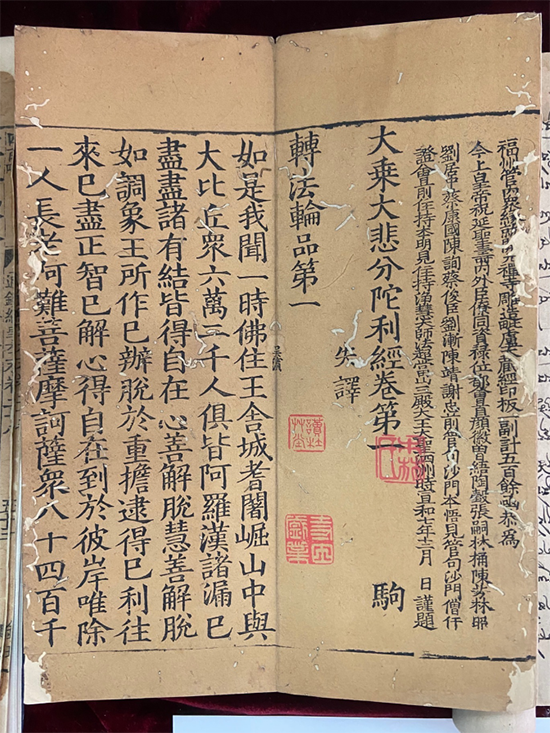 福州管內眾緣就開元禪寺雕造毗盧大藏經印板一副計五百餘函恭為
今上皇帝祝延聖壽內外臣僚同資祿位都會首顏徽曾緒陶縠張嗣林桷陳芳林昭
劉居中蔡康國陳詢蔡俊臣劉漸陳靖謝忠前管句沙門本悟見管句沙門僧仟
證會前住持本明見住持淨慧大師法超當山三殿大王大聖泗州時宣和七年十一月 日謹題
大乘大悲分陀利經卷第一 駒
失譯
轉法輪品第一
如是我聞一時佛住王舍城耆闍崛山中與
大比丘眾六萬二千人俱皆阿羅漢諸漏已
盡盡諸有結皆得自在心善解脫慧善解脫
如調象王所作已辦脫於重擔逮得已利往
來已盡正智已解心得自在到於彼岸唯除
一人長老阿難菩薩摩訶薩眾八十四百千